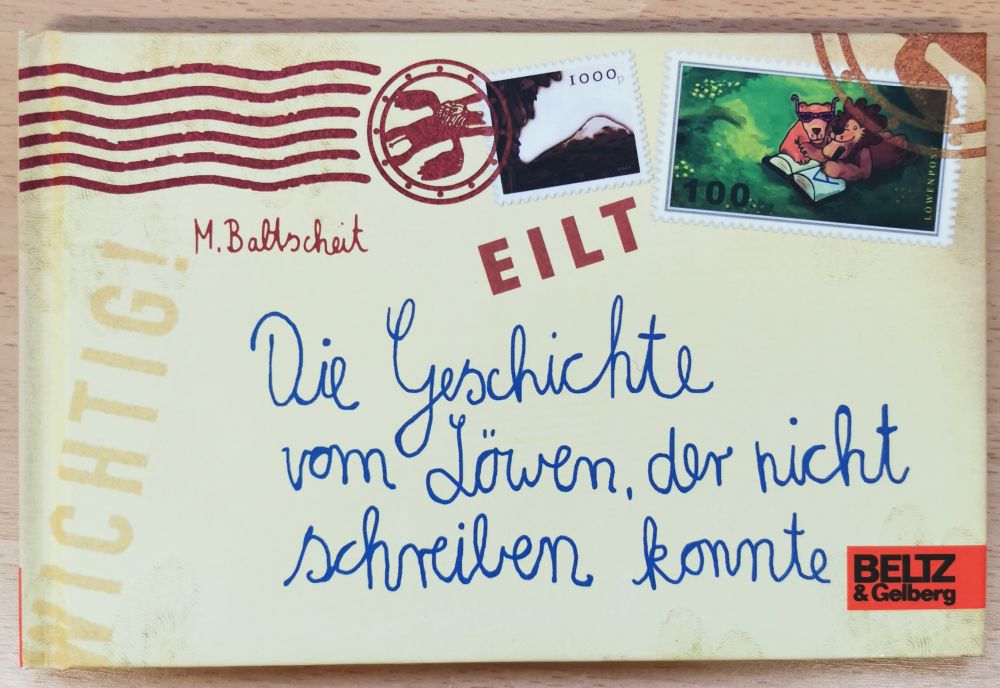 1000p
100
LÖWENPOST
M. Baltscheit
EILT
WICHTIG!
Die Geschichte
vom Löwen, der nicht
schreiben konnte
BELTZ
& Gelberg